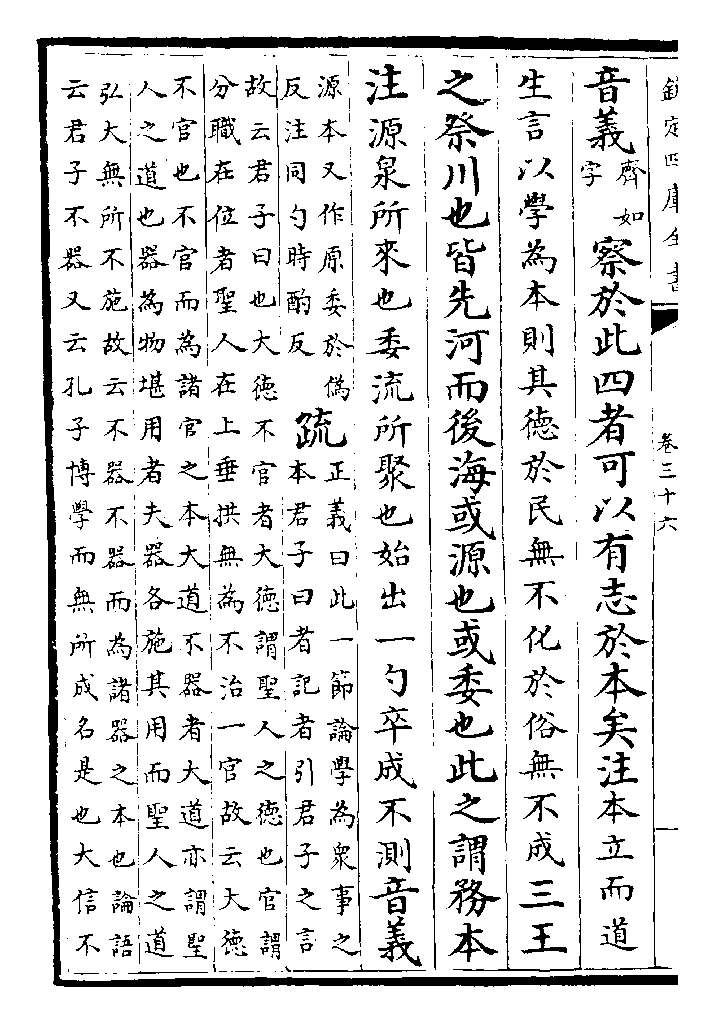 欽定四庫全書
卷三十六
音義齊如
字
察於此四者可以有志於本矣注本立而道
生言以學為本則其德於民無不化於俗無不成三王
之祭川也皆先河而後海或源也或委也此之謂務本
注源泉所來也委流所聚也始出一勺卒成不測音義
源本又作原委於偽
反注同勺時酌反
疏正義曰此一節論學為衆事之
本君子曰者記者引君子之言
故云君子曰也大德不官者大德謂聖人之德也官謂
分職在位者聖人在上垂拱無為不治一官故云大德
不官也不官而為諸官之本大道不器者大道亦謂聖
人之道也器為物堪用者夫器各施其用而聖人之道
弘大無所不施故云不器不器而為諸器之本也論語
云君子不器又云孔子博學而無所成名是也大信不